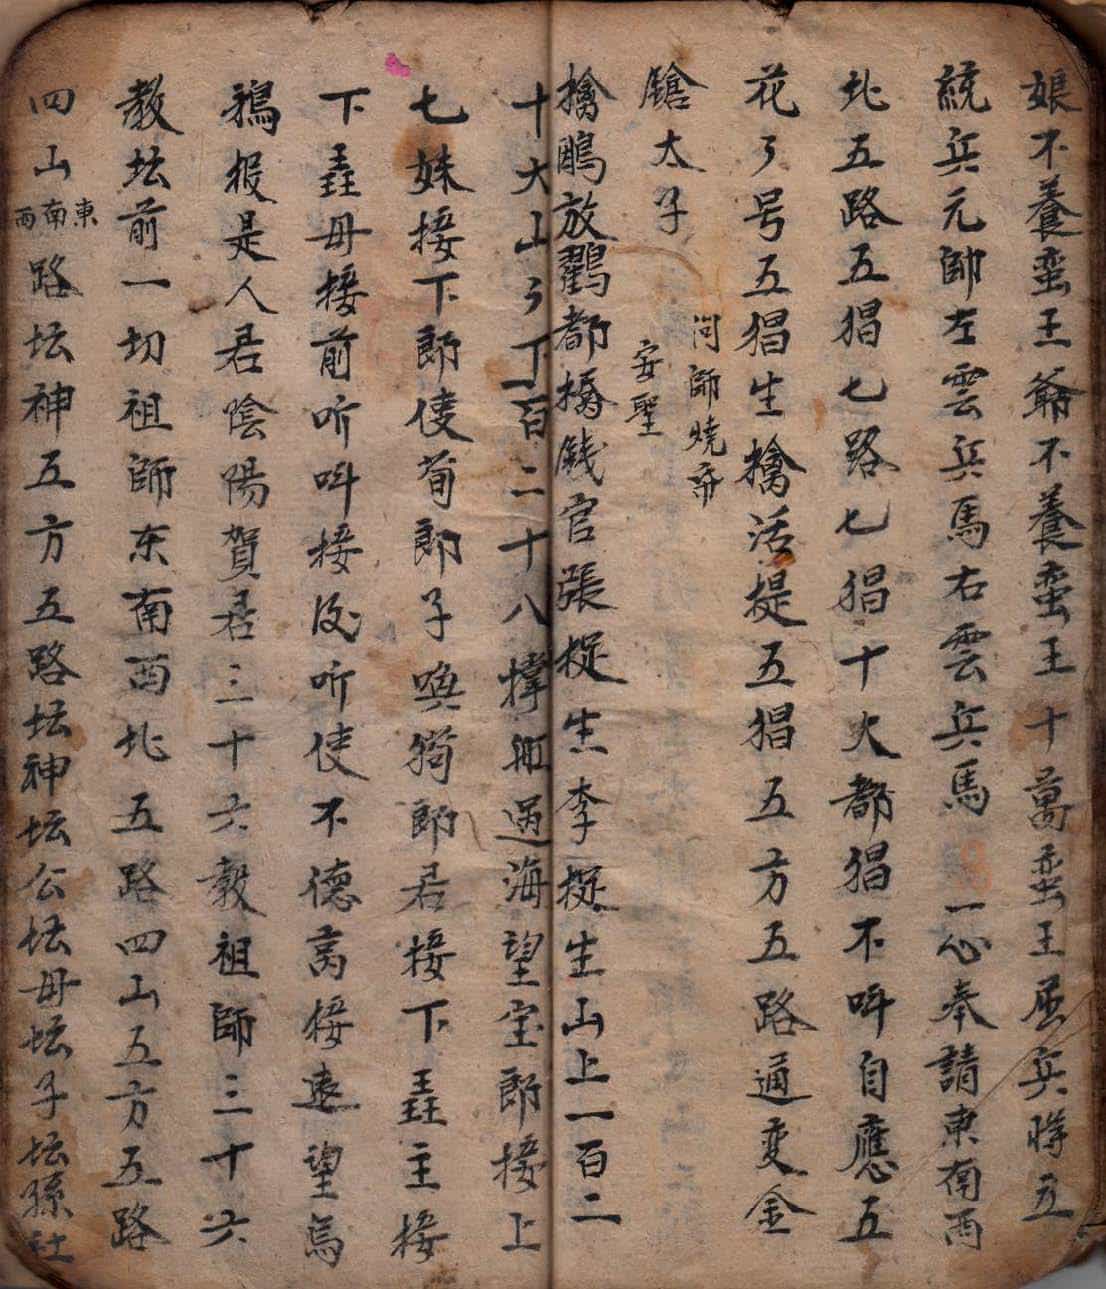 娘不養蛮王爺不養蛮王十萬蛮王屈兵將五
統兵元帥左雲兵馬右雲兵馬一心奉請東南西
北五路五猖七路七猖十大都猖不呌自應五
花了号五猖生擒活捉五猖五方五路通变金
鎗太子
问師燒
安聖
擒鵰放鷂都橋錢官張捉生李捉生山上一百二
十大山了丁一百二十八撑船過海望宝郎接上
七妹接下郎使荀郎子喚狗郎君接下壵主接
下壵母接前听呌接後听使不德高接遠望烏
鴉报是人君陰陽賀君三十六教祖師三十六
教坛前一切祖師东南西北五路四山五方五路
四山東南西路坛神五方五路坛神坛公坛母坛子坛孫社